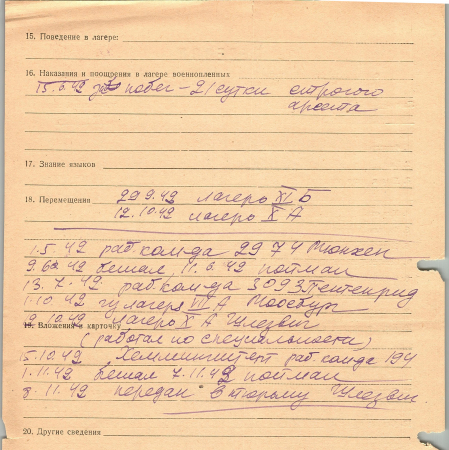 15. Поведение в лагере:
16. Наказания и поощрения в лагере военнопленных
15.6.42 за побег - 21 сутки строгого
ареста
17. Знание языков
18. Перемещения 29.9.42 лагерь XI Б
12.10.42 лагерь X А
1.5.42 раб. ком-да 2974 Мюнхен
9.6.42 бежал, 11.6.42 пойман
13.7.42 раб. ком-да 3093
1.10.42 лагерь VII А Моосбург
9.10.42 лагерь X А Шлезвиг
19. Вложения в карточку
(работал по специальности)
5.10.42 раб. ком-да 194
1.11.42 бежал 7.11.42 пойман
8.11.42 передан в тюрьму Шлезвиг
20. Другие сведения